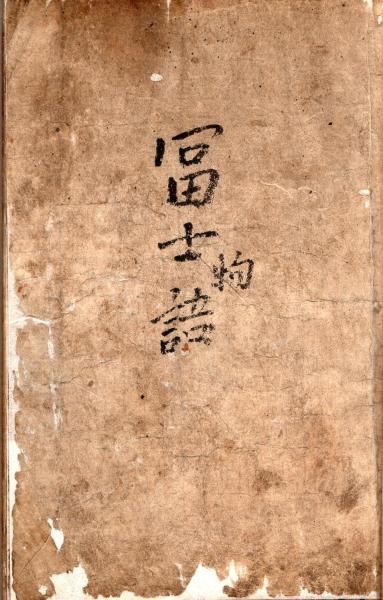 冨士物語